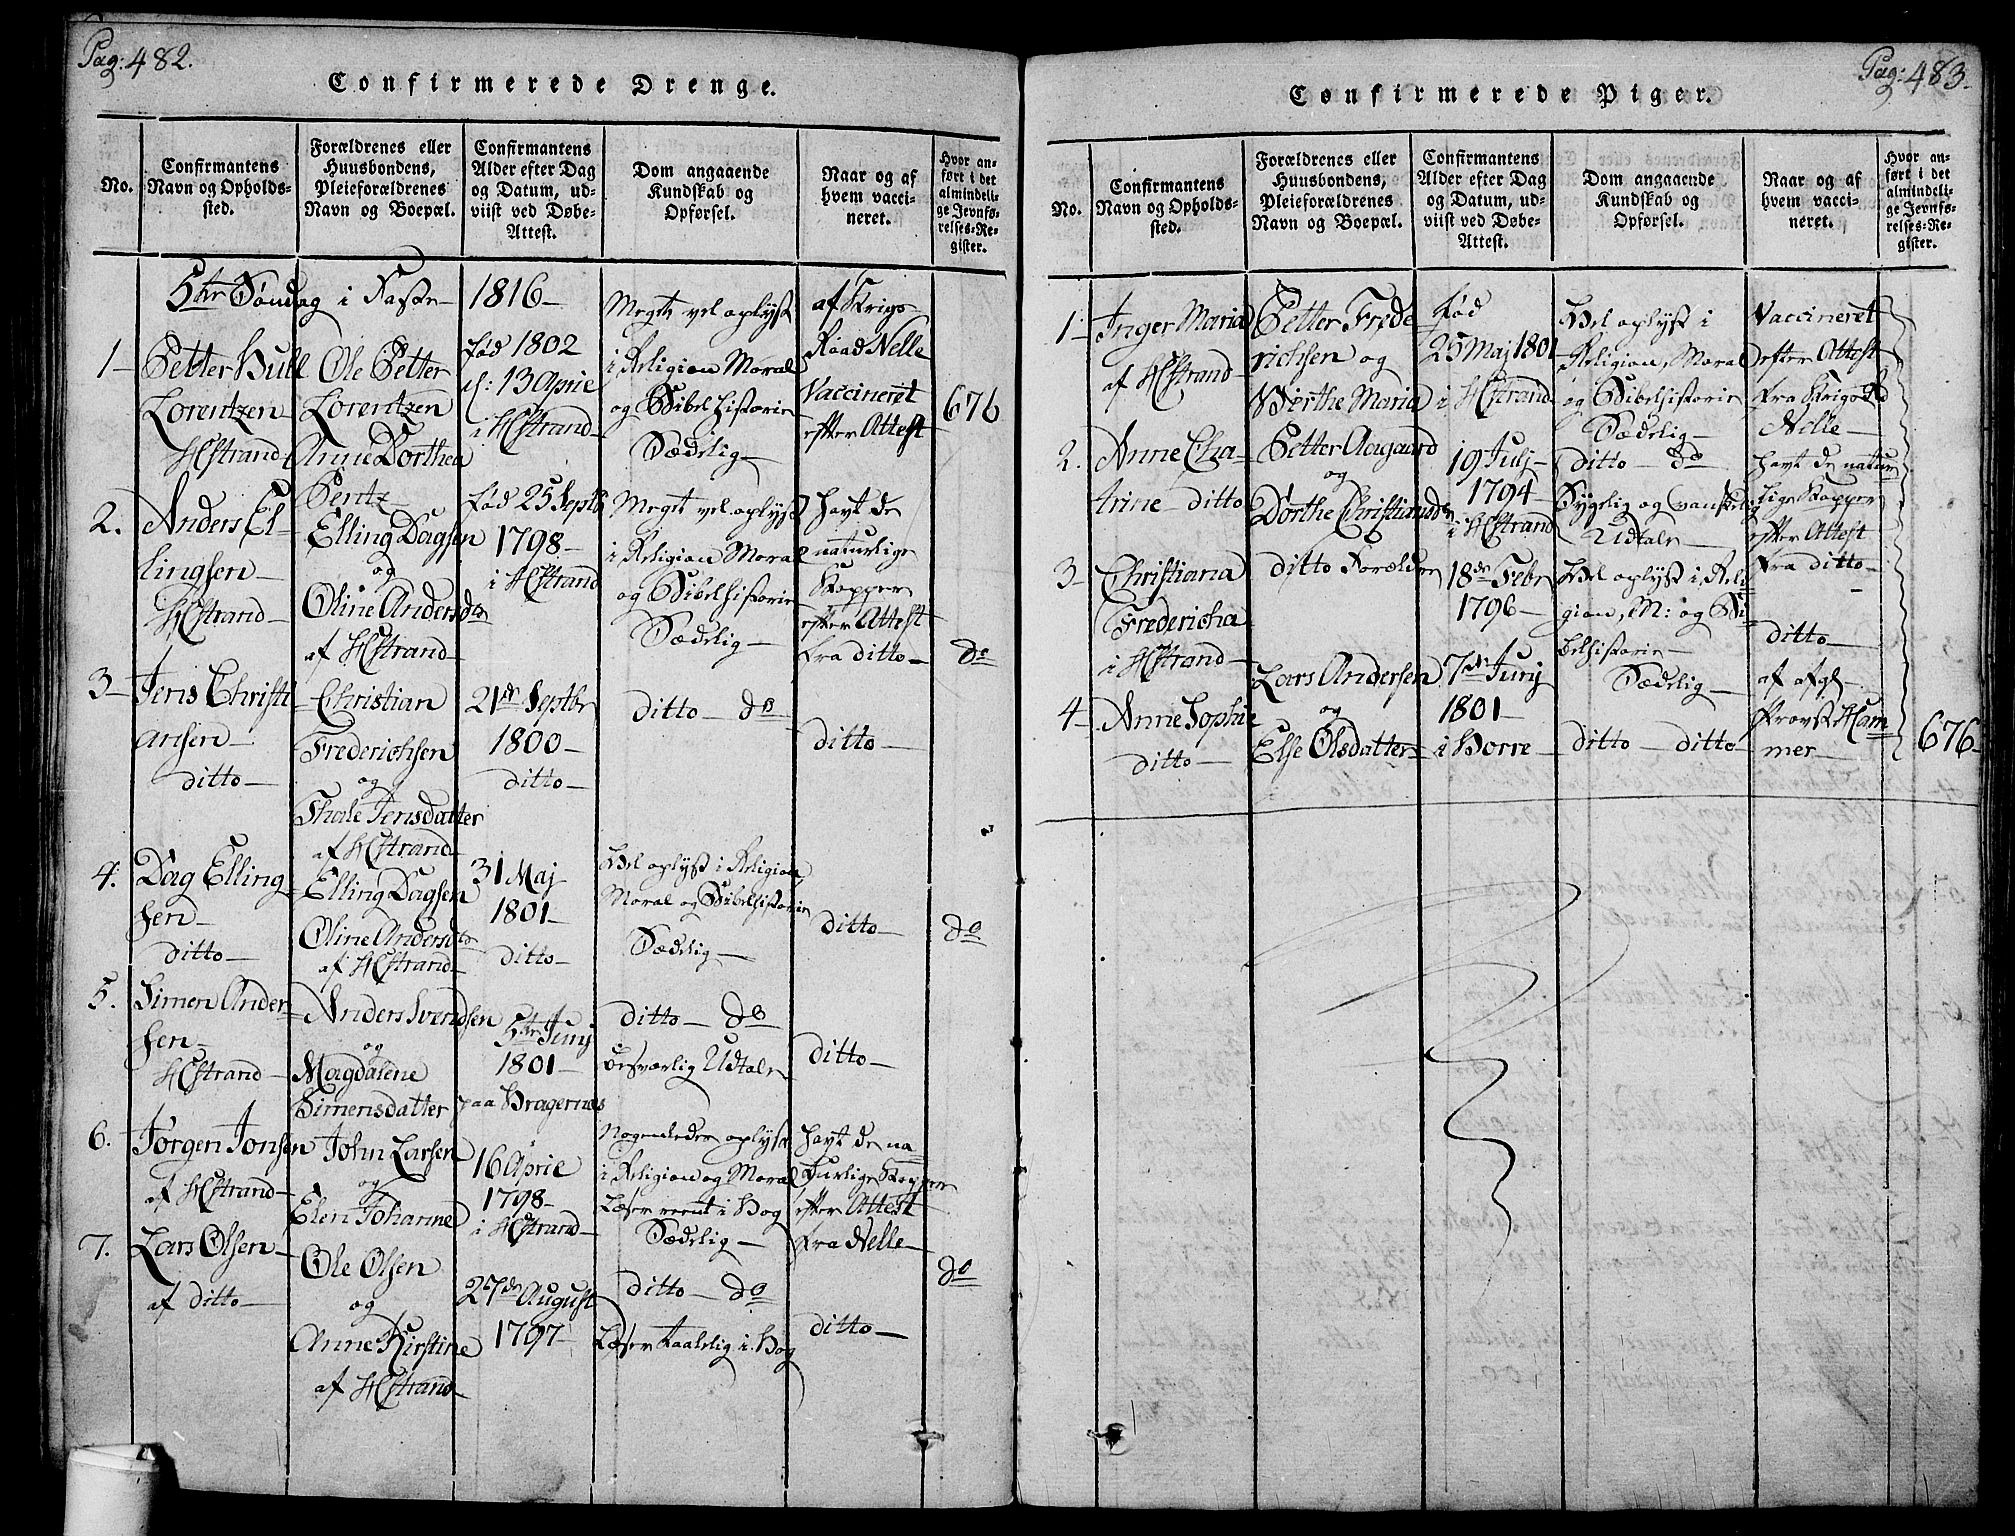 Pag: 482.
Confirmerede Drenge.
No.
Confirmantens
Navn og Opholds-
sted.
Forældrenes eller
Huusbondens,
Pleieforældrenes
Navn og Boepæl.
Confirmantens
Alder efter Dag
og Datum, ud-
viist ved Døbe-
Attest.
Dom angaaende
Kundskab og
Opførsel.
Naar og af
hvem vacci-
neret.
Hvor an-
ført i det
almindeli-
ge Jevnfø-
relses-Re-
gister.
5te Søndag i Faste 1816
1 Petter Bull
Lorentzen
HStrand
Ole Petter
Lorentzen
Anne Dorthea
Bentz
Fød 1802
d: 13 Aprie
i HStrand
Meget vel oplyst
i Religion Moral
og Bibelhistorie
Sædelig
af Krigs-
Raad Nelle
Vaccineret
efter Attest
676
2. Anders El-
lingsen
HStrand
Elling Dagsen
og
Oline Andersdtr
af HStrand
Fød 25 Septb
1798
i HStrand
Meget vel oplyst
i Religion Moral
og Bibelhistorie
Sædelig
Havt de
naturlige
Kopper
efter Attest
fra ditto
do
3 Jens Christi
ansen
ditto
Christian
Frederichsen
og
Thale Jensdatter
af HStrand
21de Septbr
1800
ditto
ditto do
ditto
4. Dag Elling
sen
ditto
Elling Dagsen
Oline Andersdtr
af HStrand
31 Maj
1801
ditto
Vel oplyst i Religion
Moral og Bibelhistorie
Sædelig
ditto
do
5. Simen Ander
sen
HStrand
Anders Svendsen
og
Magdalene
Simensdatter
5te Junij
1801
paa Bragernæs
ditto do
besværlig Udtale
ditto
6. Jørgen Jonsen
af HStrand
John Larsen
og
Elen Johanne
16 Aprie
1798
i HStrand
Nogenleder oplyst
i Religion og Moral
Læser reent i Bog
Sædelig
Havt de na
turlige Kopper
efter Attest
fra Nelle
7. Lars Olsen
af ditto
Ole Olsen
og
Anne Kirstine
af HStrand
27de August
1797
ditto do
Læser taalelig i Bog
ditto
do
Pag: 483
Confirmerede Piger.
No.
Confirmantens
Navn og Opholds-
sted.
Forældrenes eller
Huusbondens,
Pleieforældrenes
Navn og Boepæl.
Confirmantens
Alder efter Dag
og Datum, ud-
viist ved Døbe-
Attest.
Dom angaaende
Kundskab og
Opførsel.
Naar og af
hvem vacci-
neret.
Hvor an-
ført i det
almindeli-
ge Jevnfø-
relses-Re-
gister.
1 Inger Maria
af HStrand
Petter Frede
richsen og
Berthe Maria
Fød
25 Maj 1801
i HStrand
Vel oplyst i
Religion, Moral
og Bibelhistorie
Sædelig
Vaccineret
efter Attest
fra Krigs Rd
Nelle
2. Anne Cha-
trine ditto
Petter Aagaard
og
Dorthe Christiansdtr
19 Julj
1794
i HStrand
ditto do
Sygelig og vanskelig
Udtale
Havt de natur
lige Kopper
efter Attest
fra ditto
3 Christiana
Fredericha
i HStrand
ditto Forældre
18de Febr
1796
Vel oplyst i Reli
gion, M: og Bi
belhistorie
Sædelig
ditto
4 Anne Sophie
ditto
Lars Andersen
og
Else Olsdatter
7de Junij
1801
i Borre
ditto ditto
af afg.
Provst Ham
mer
676